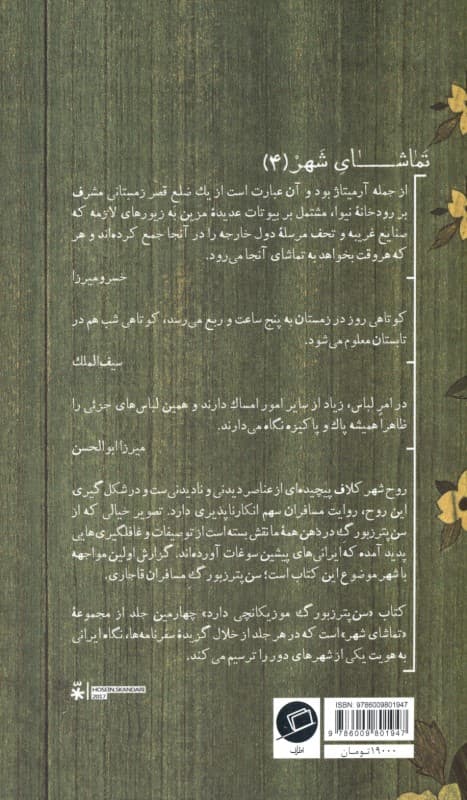 تماشای شهر (۴)
از جمله آرمیتاژ بود و آن عبارت است از یك ضلع قصر زمستانی مشرف
بر رودخانهٔ نیوا، مشتمل بر بیوتات عدیدهٔ مزین به زیورهای لازمه که
صنایع غریبه و تحف مرسلهٔ دول خارجه را در آنجا جمع کرده‌اند و هر
که هر وقت بخواهد به تماشای آنجا می‌رود.
خسرو میرزا
کوتاهی روز در زمستان به پنج ساعت و ربع می‌رسد، کوتاهی شب هم در
تابستان معلوم می‌شود.
سیف‌الملك
در امرِ لباس، زیاد از سایر امور امساك دارند و همین لباس‌های جزئی را
ظاهراً همیشه پاك و پاکیزه نگاه می‌دارند.
میرزا ابوالحسن
روح شهر کلاف پیچیده‌ای از عناصر دیدنی و نادیدنی‌ست و در شکل گیری
این روح، روایت مسافران سهم انکارناپذیری دارد. تصویر خیالی که از
سن‌پترزبورگ در ذهن همهٔ ما نقش بسته است از توصیفات و غافلگیری‌هایی
پدید آمده که ایرانی‌های پیشین سوغات آورده‌اند. گزارش اولین مواجهه
با شهر موضوع این کتاب است؛ سن‌پترزبورگ مسافران قاجاری.
کتاب «سن‌پترزبورگ موزیکانچی دارد» چهارمین جلد از مجموعهٔ
«تماشای شهر» است که در هر جلد از خلال گزیدهٔ سفرنامه‌ها، نگاه ایرانی
به هویت یکی از شهرهای دور را ترسیم می کند.
HOSEIN.SKANDARI
2017
ISBN 9786009801947
9 786009 801947
۱۹۰۰۰ تومان
اطراف